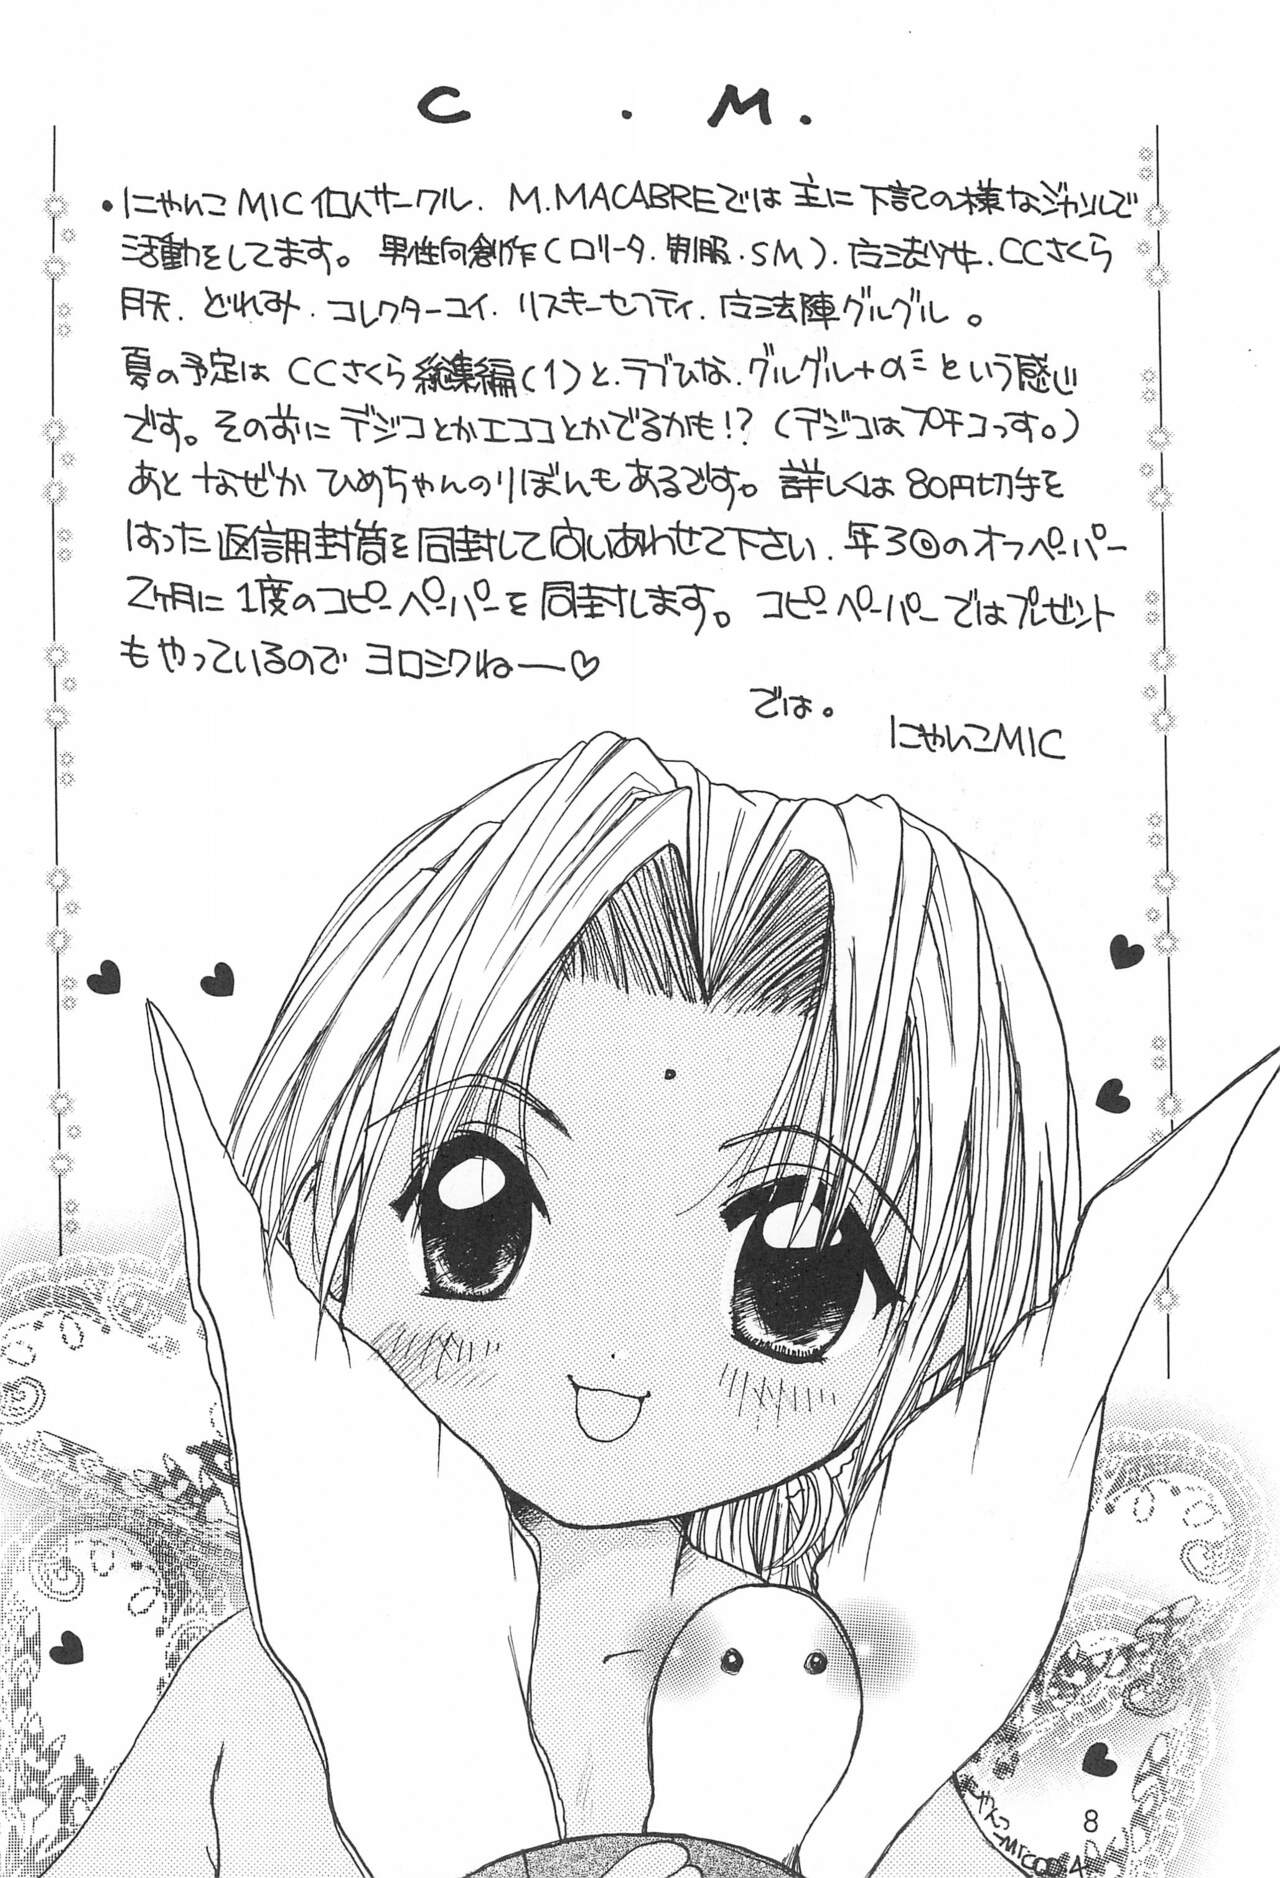 C . M.
・にゃんこMIC個人サークル、M.MACABREでは主に下記の様なジャンルで
活動をしてます。男性向創作(ロリータ.制服.SM)、魔法少女、CCさくら
月天、どれみ、コレクターユイ、リスキーセフティ、魔法陣グルグル。
夏の予定はCCさくら総集編(1)と、ラブひな、グルグル+αミという感じ
です。その前にデジコとかエココとかでるかも!?(デジコはプチコっす。)
あとなぜかひめちゃんのりぼんもあるです。詳しくは80円切手を
はった返信用封筒を同封して向いあわせて下さい.年3回のオフペーパー
2ヶ月に1度のコピーペーパーを同封します。コピーペーパーではプレゼント
もやっているのでヨロシクねー♡
では。
にゃんこMIC
にゃんこ
MIC
8